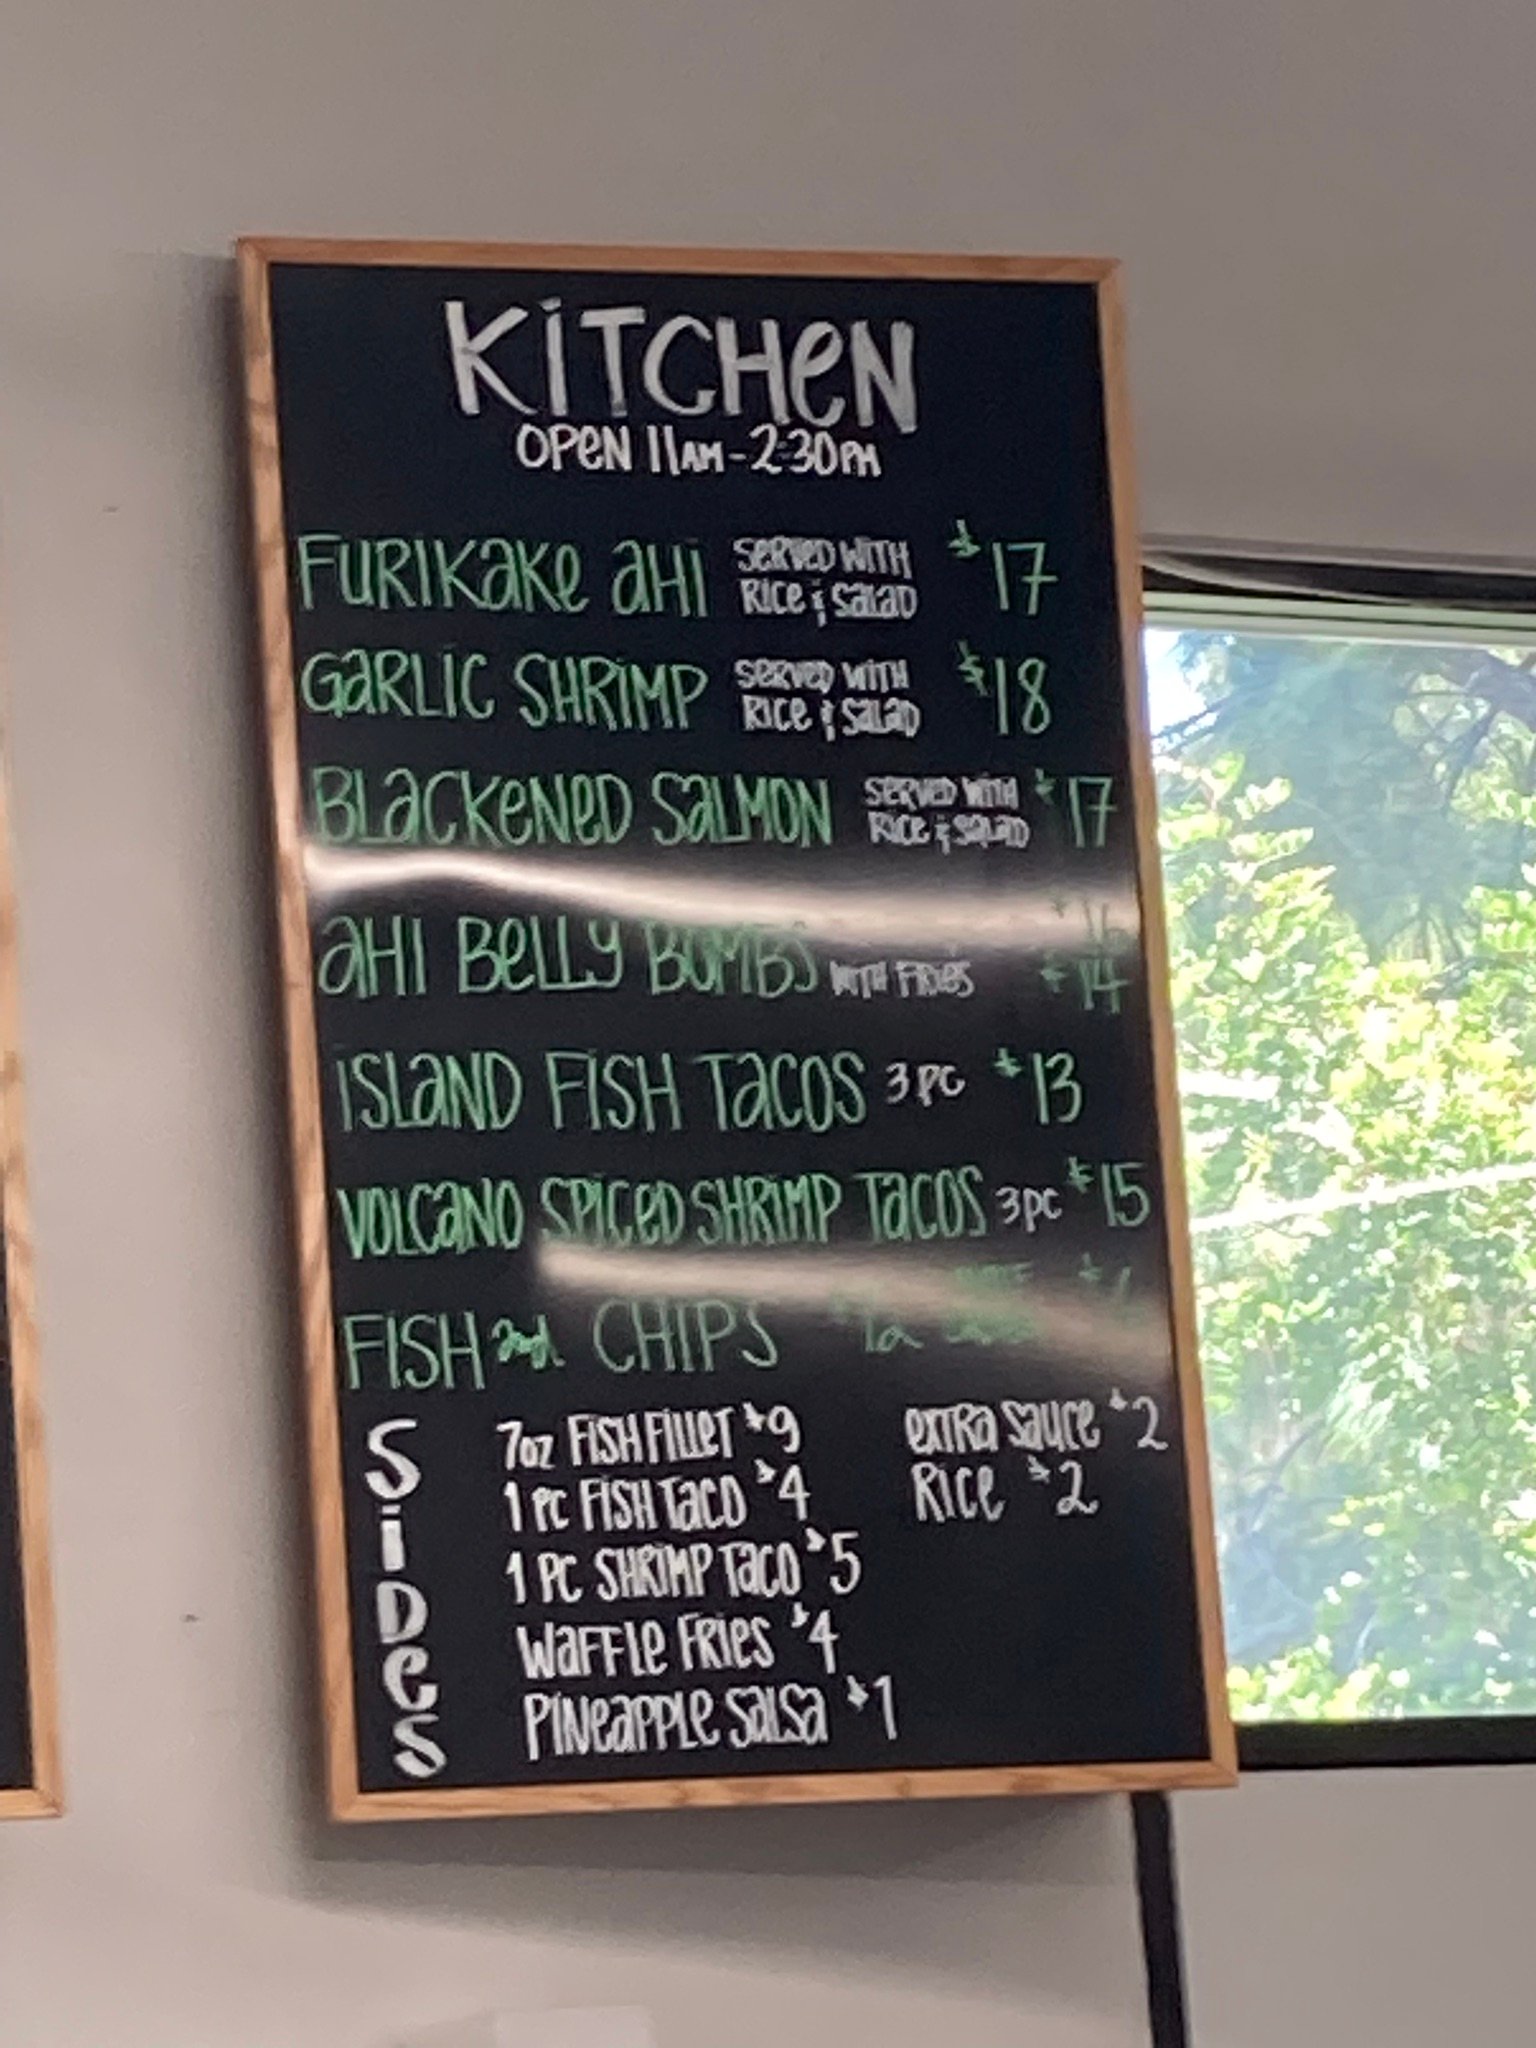 KITCHEN
OPEN 11AM-2:30PM
FURIKAKE AHI SERVED WITH RICE & SALAD $17
GARLIC SHRIMP SERVED WITH RICE & SALAD $18
BLACKENED SALMON SERVED WITH RICE & SALAD $17
AHI BELLY BOMBS WITH FRIES $14
ISLAND FISH TACOS 3 PC $13
VOLCANO SPICED SHRIMP TACOS 3 PC $15
FISH and CHIPS
SIDES
7oz FISH FILLET $9
1 PC FISH TACO $4
1 PC SHRIMP TACO $5
WAFFLE FRIES $4
PINEAPPLE SALSA $1
EXTRA SAUCE $2
RICE $2